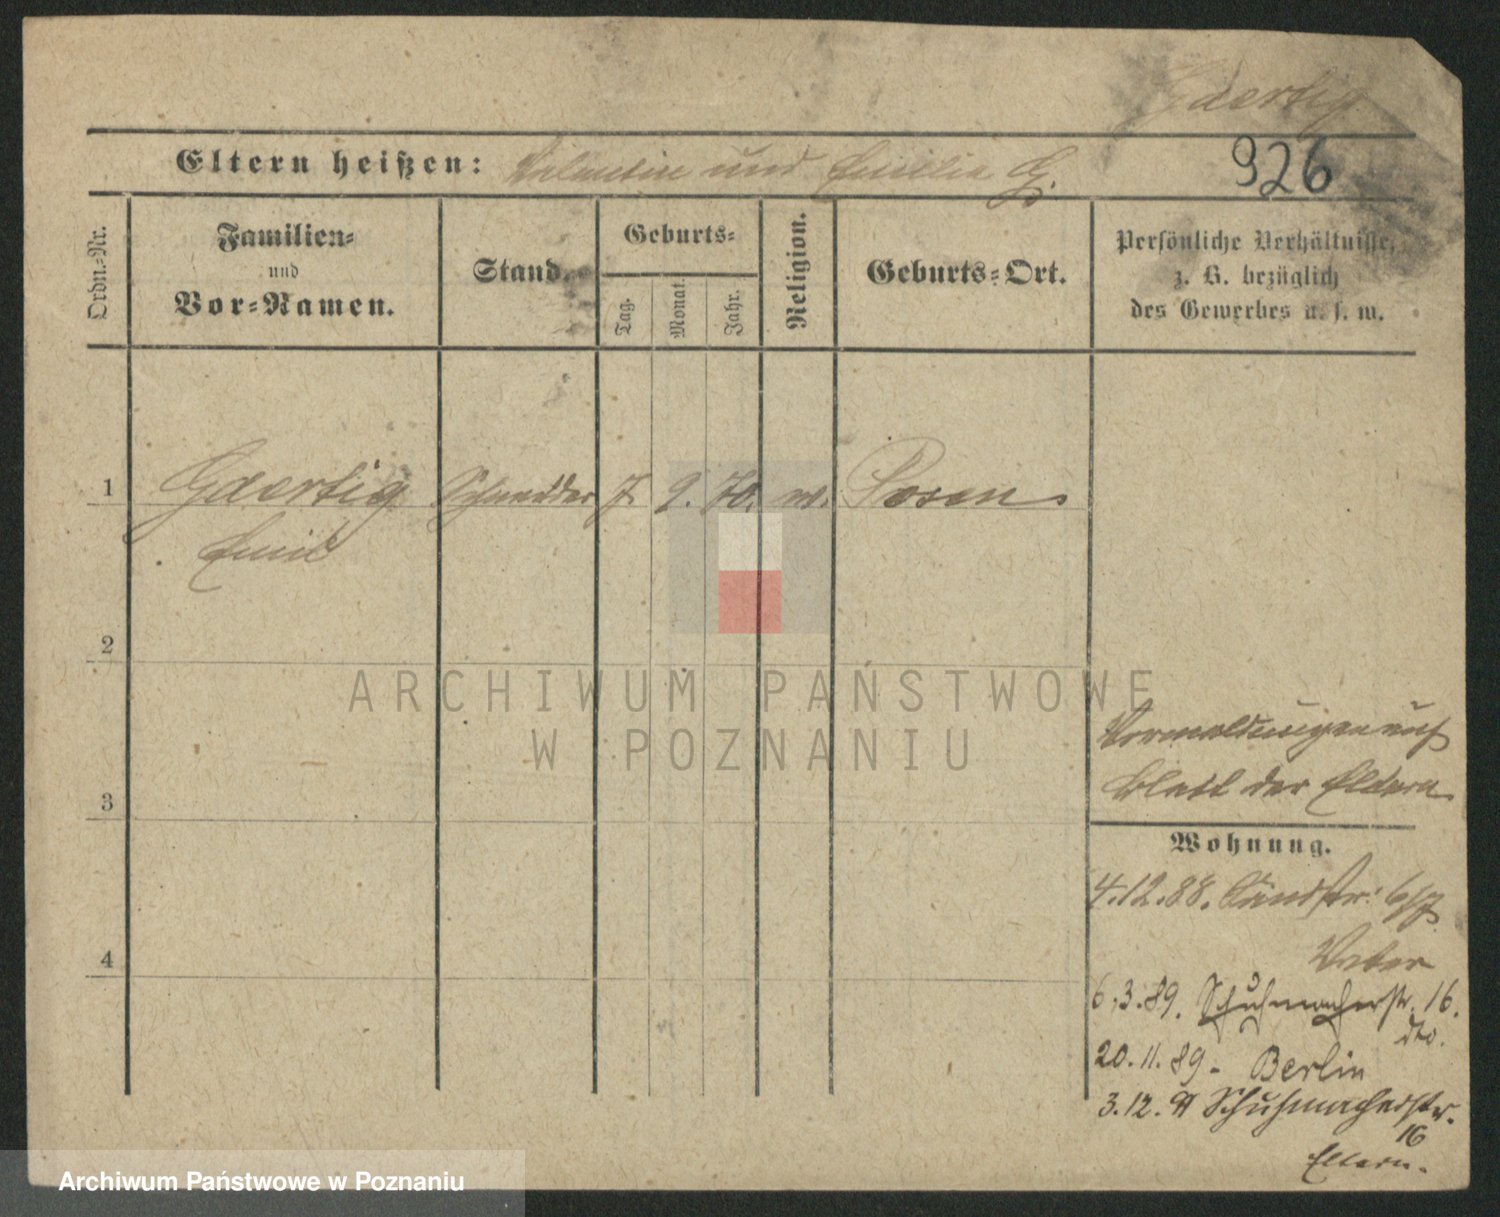 Gaertig
Eltern heißen: Valentin und Emilie G.
926
Ordn.-Nr.
Familien-
und
Vor-Namen.
Stand.
Geburts-
Tag.
Monat.
Jahr.
Religion.
Geburts-Ort.
Persönliche Verhältnisse,
z. B. bezüglich
des Gewerbes u. s. w.
1 Gaertig Schneider 7. 9. 70. Posen
Emil
2
3
4
Vormeldungen auf
Blatt der Eltern
Wohnung.
4.12.88. Sandstr. 6/7
Vater
6.3.89. Schuhmacherstr. 16.
dto.
20.11.89. Berlin
3.12.91 Schuhmacherstr.
16
Eltern.
ARCHIWUM PAŃSTWOWE
W POZNANIU
Archiwum Państwowe w Poznaniu